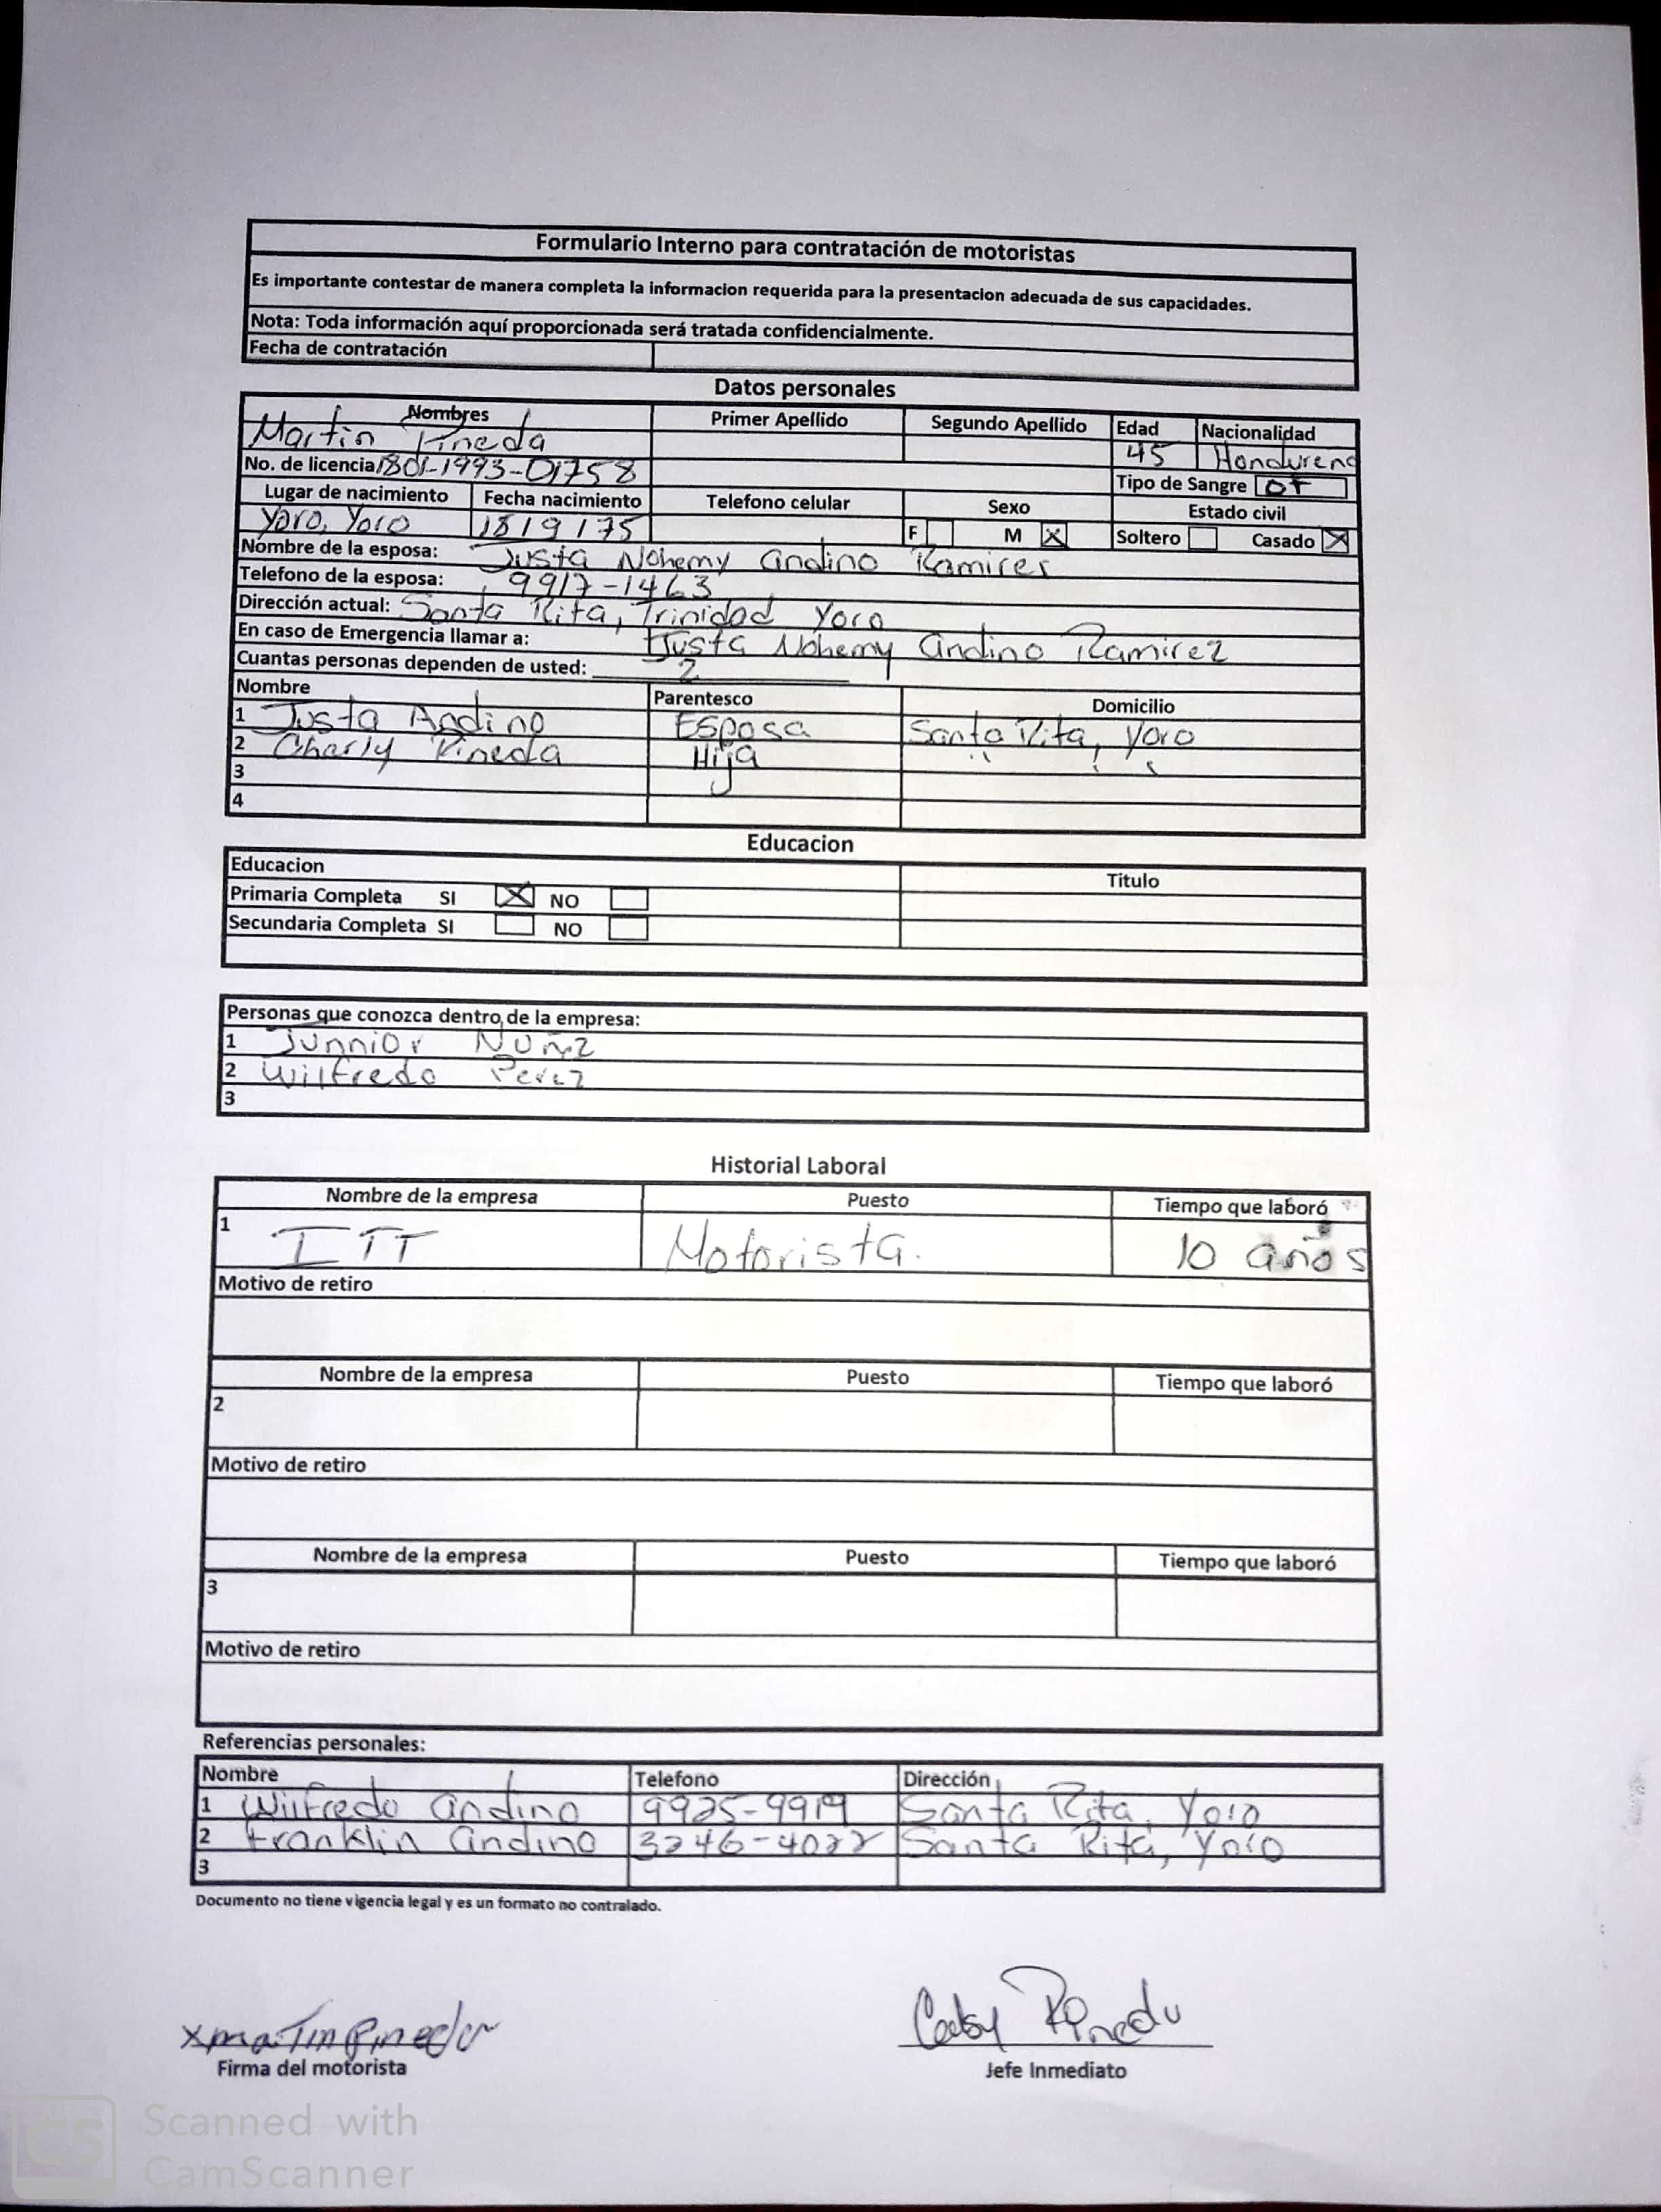 Formulario Interno para contratación de motoristas
Es importante contestar de manera completa la informacion requerida para la presentacion adecuada de sus capacidades.
Nota: Toda información aquí proporcionada será tratada confidencialmente.
Fecha de contratación
Datos personales
Nombres Primer Apellido Segundo Apellido Edad Nacionalidad
Martin Pineda 45 Hondureno
No. de licencia 1801-1993-01758 Tipo de Sangre O+
Lugar de nacimiento Fecha nacimiento Telefono celular Sexo Estado civil
Yoro, Yoro F M X Soltero Casado X
Nombre de la esposa: Justa Nohemy andino Ramirez
Telefono de la esposa: 9917-1463
Dirección actual: Santa Rita, Trinidad Yoro
En caso de Emergencia llamar a: Justa Nohemy andino Ramirez
Cuantas personas dependen de usted: 2
Nombre Parentesco Domicilio
1 Justa Andino Esposa Santa Rita, Yoro
2 Charly Pineda Hija
3
4
Educacion
Educacion Titulo
Primaria Completa SI X NO
Secundaria Completa SI NO
Personas que conozca dentro de la empresa:
1 Junnior Nuñz
2 Wilfredo Perez
3
Historial Laboral
Nombre de la empresa Puesto Tiempo que laboró
1 ITT Motorista. 10 años
Motivo de retiro
Nombre de la empresa Puesto Tiempo que laboró
2
Motivo de retiro
Nombre de la empresa Puesto Tiempo que laboró
3
Motivo de retiro
Referencias personales:
Nombre Telefono Dirección
1 Wilfredo andino 9925-9919 Santa Rita, Yoro
2 Franklin andino 3246-4022 Santa Rita, Yoro
3
Documento no tiene vigencia legal y es un formato no contralado.
xmaTin Pineda
Pineda
Firma del motorista Jefe Inmediato
CS Scanned with
CamScanner